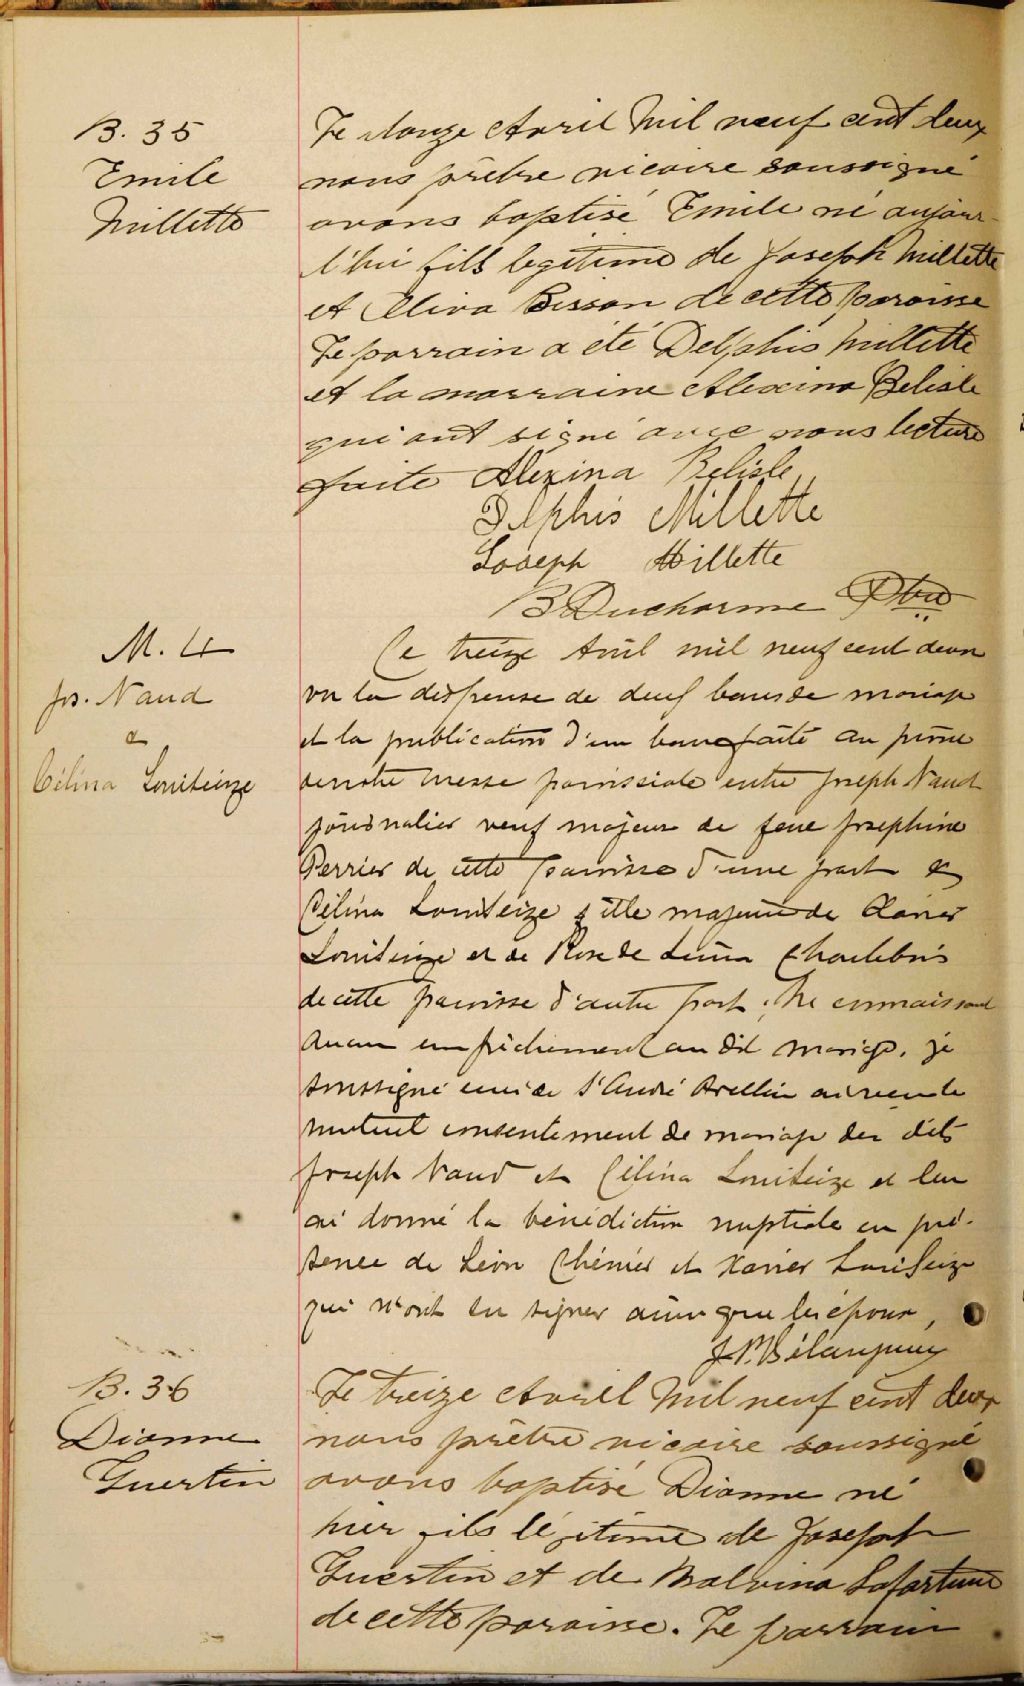 B. 35
Emile
Millette
Le douze Avril Mil neuf cent deux
nous prêtre vicaire soussigné
avons baptisé Emile né aujour-
d'hui fils legitime de Joseph Millette
et Elira Bisson de cette paroisse
Le parrain a été Delphis Millette
et la marraine Alexina Belisle
qui ont signé avec nous lecture
faite Alexina Belisle
Delphis Millette
Joseph Millette
B Ducharme Ptre
M. 4
Js. Naud
&
Célina Louiseize
Ce treize Avril mil neuf cent deux
vu la dispense de deux bans de mariage
et la publication d'un ban faite au prône
de notre messe paroissiale entre Joseph Naud
journalier veuf majeur de feue Josephine
Perrier de cette paroisse d'une part &
Célina Louiseize fille majeure de Xavier
Louiseize et de Rose de Lima Charlebois
de cette paroisse d'autre part; Ne connaissant
aucun empêchement au dit mariage, je
soussigné curé de St André Avellin ai reçu le
mutuel consentement de mariage des dits
Joseph Naud et Célina Louiseize et leur
ai donné la bénédiction nuptiale en pré-
sence de Léon Chénier et Xavier Louiseize
qui n'ont su signer ainsi que les époux,
J. P. Bélanger
B. 36
Dianne
Guertin
Le treize Avril Mil neuf cent deux
nous prêtre vicaire soussigné
avons baptisé Dianne né
hier fils légitime de Joseph
Guertin et de Malvina Lafortune
de cette paroisse. Le parrain